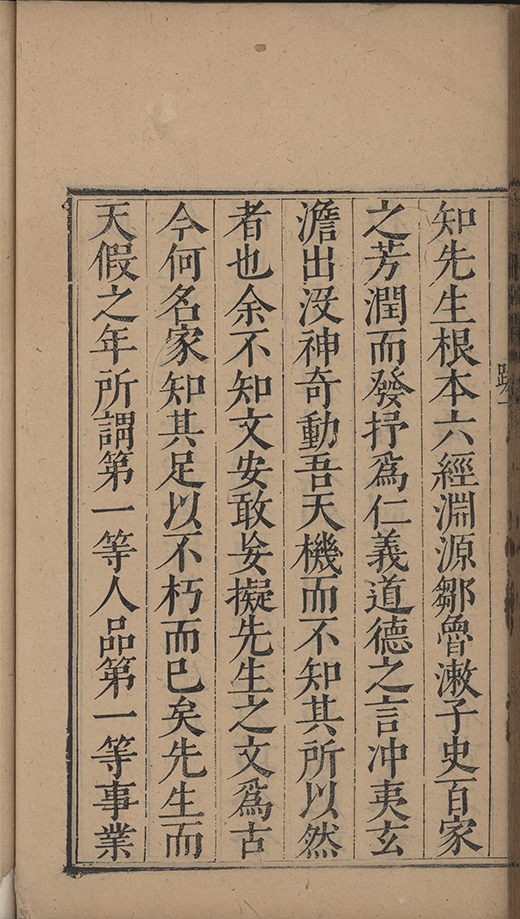 跋一
知先生根本六經淵源鄒魯漱子史百家
之芳潤而發抒爲仁義道德之言冲夷玄
澹出沒神奇動吾天機而不知其所以然
者也余不知文安敢妄擬先生之文爲古
今何名家知其足以不朽而已矣先生而
天假之年所謂第一等人品第一等事業